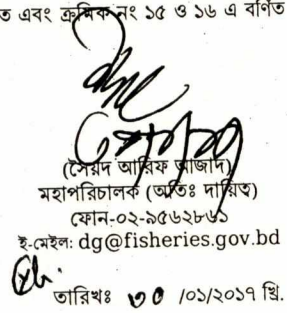 ত এবং ক্রমিক নং ১৫ ও ১৬ এ বর্ণিত
(সৈয়দ আরিফ আজাদ)
মহাপরিচালক (অতিঃ দায়িত্ব)
ফোন-০২-৯৫৬২৮৬১
ই-মেইল: dg@fisheries.gov.bd
তারিখঃ ৩০ /০১/২০১৭ খ্রি.